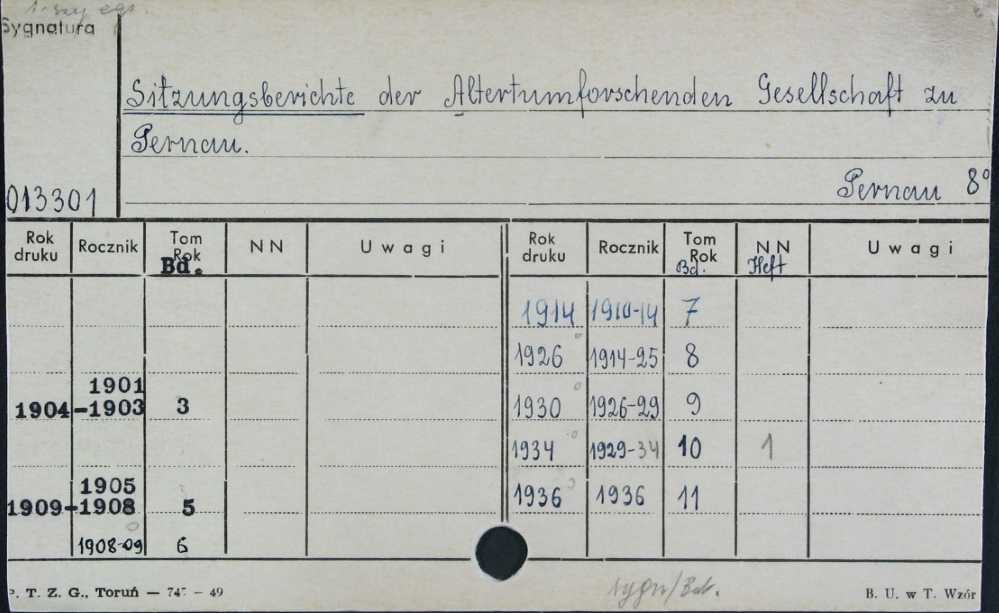 1-szy egz.
Sygnatura
Sitzungsberichte der Altertumforschenden Gesellschaft zu
Pernau.
013301
Pernau 8°
Rok druku Rocznik Tom Rok Bd. NN Uwagi Rok druku Rocznik Tom Rok Bd. NN Heft Uwagi
1914 1910-14 7
1926 1914-25 8
1904 1901-1903 3 1930 1926-29 9
1934 1929-34 10 1
1909 1905-1908 5 1936 1936 11
1908-09 6
P. T. Z. G., Toruń — 747 — 49
B. U. w T. Wzór